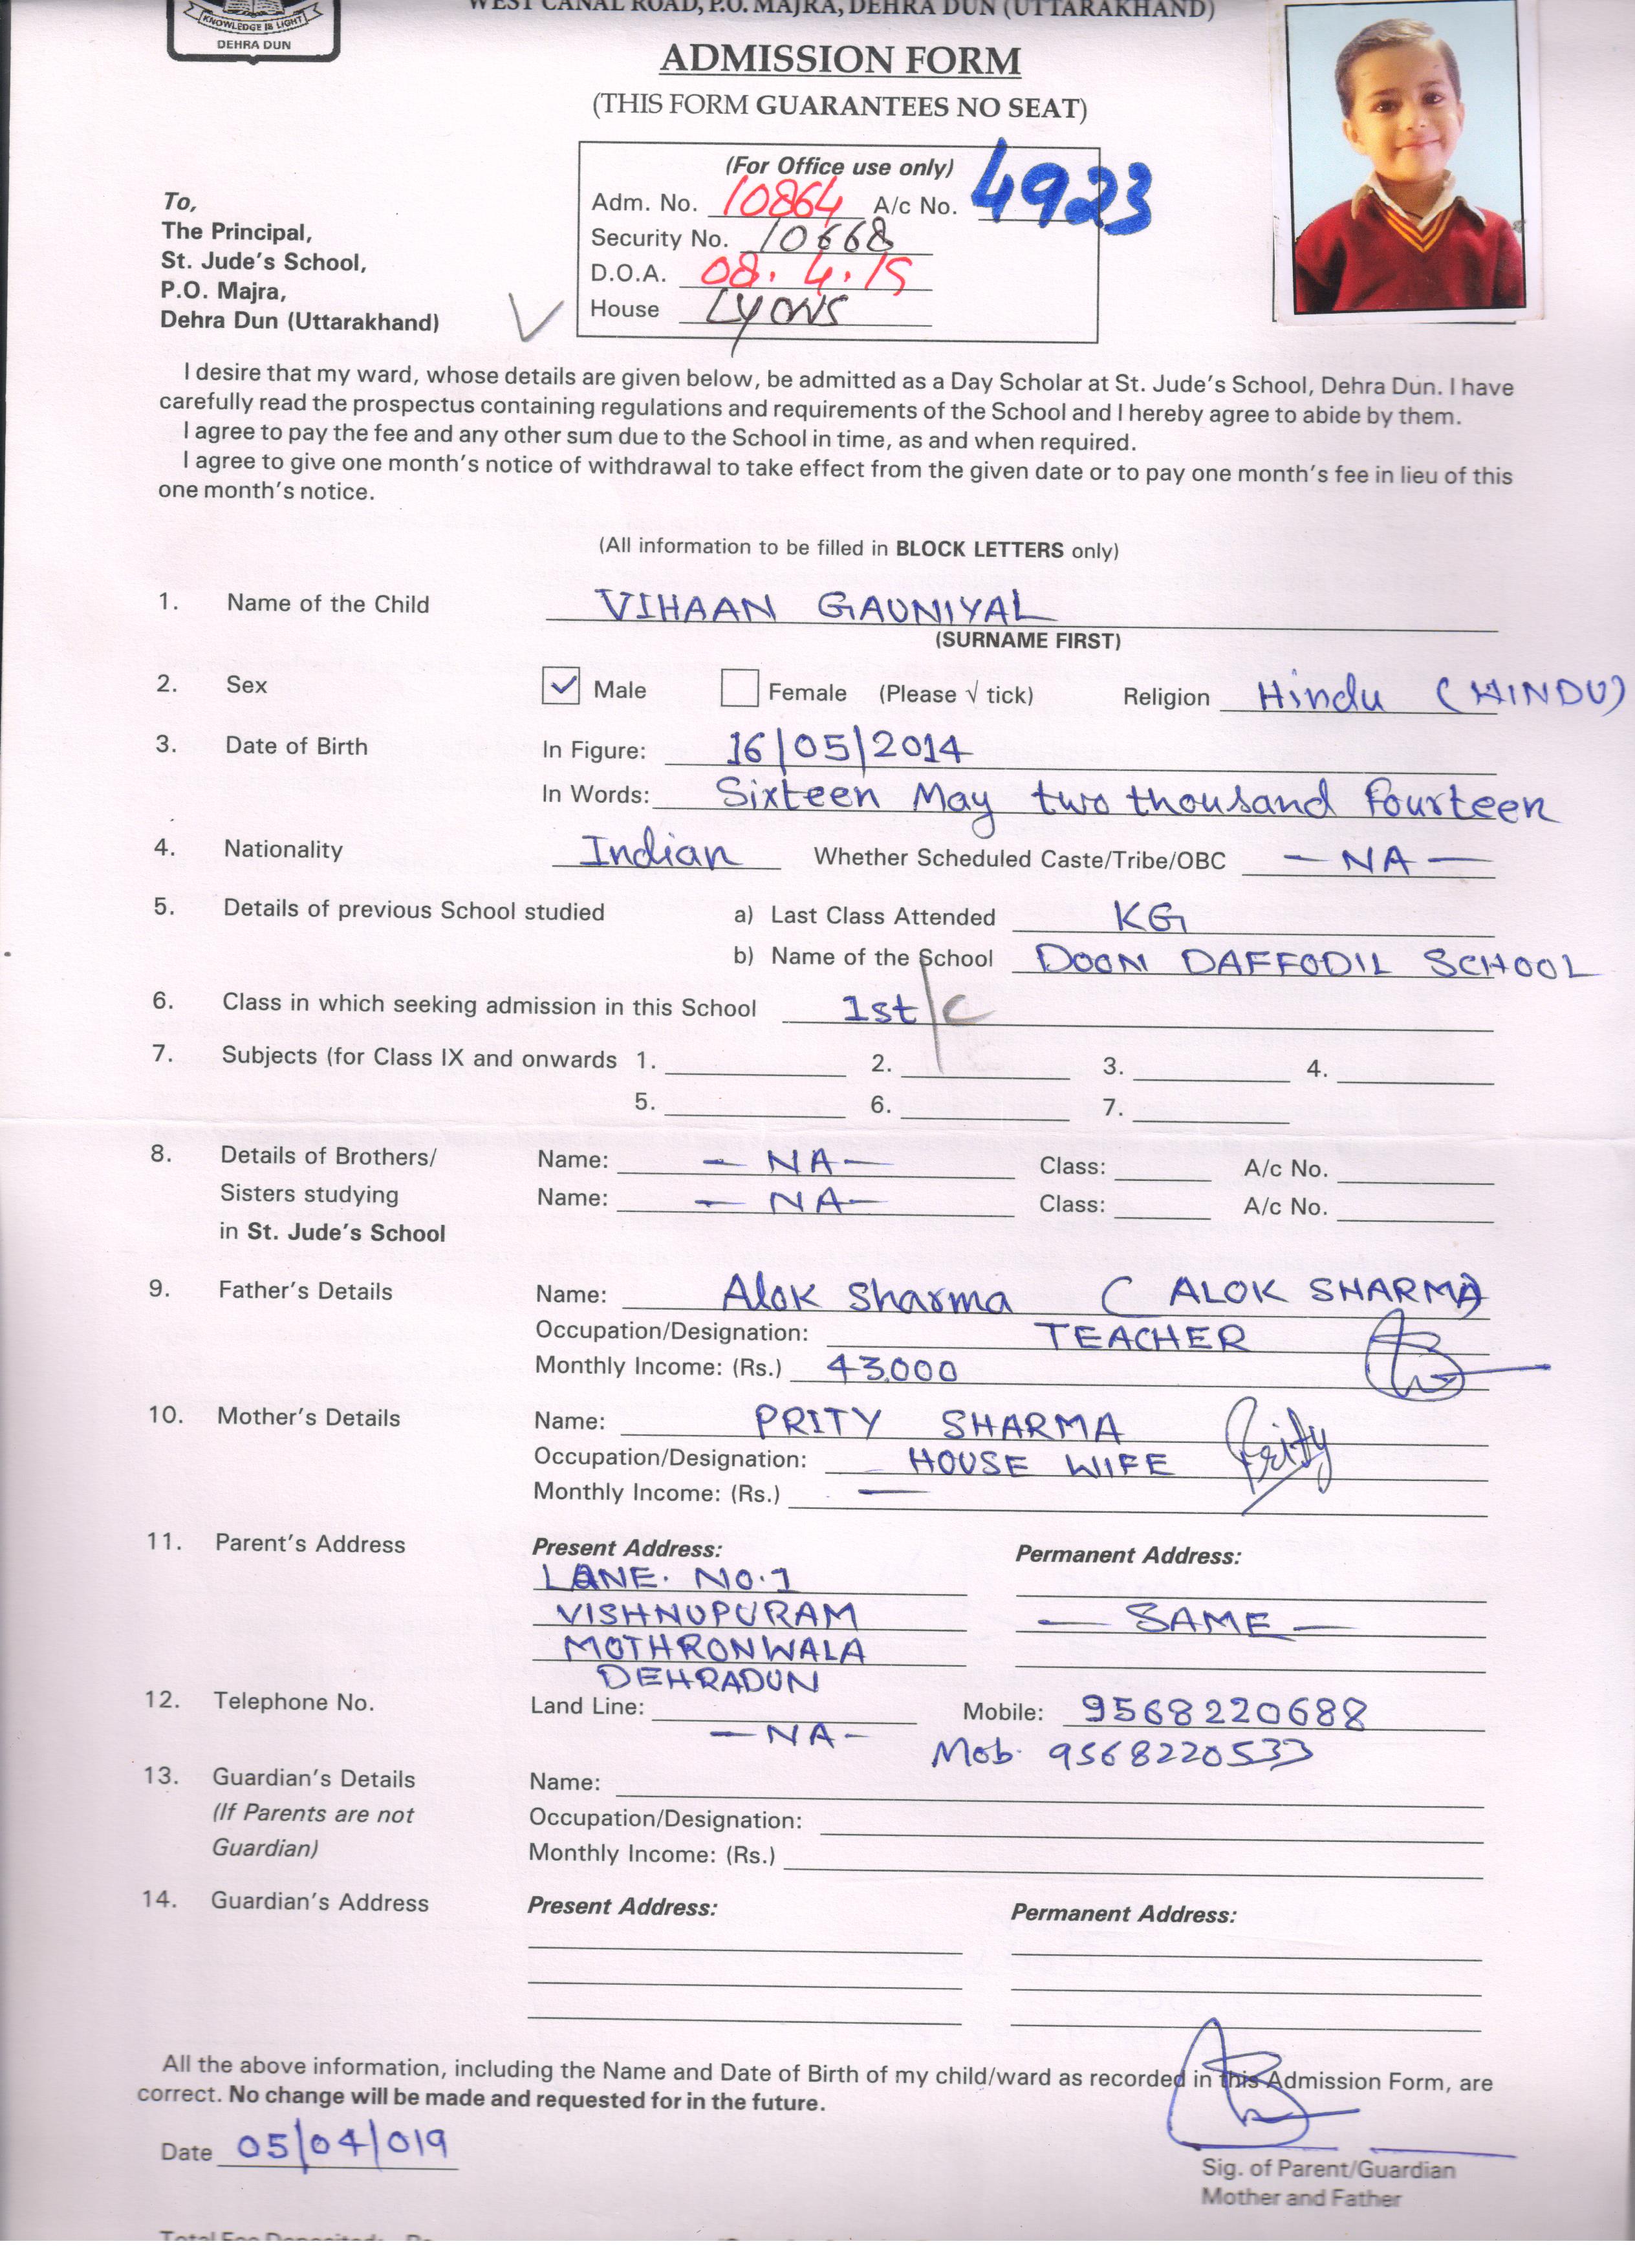 KNOWLEDGE IS LIGHT
DEHRA DUN
WEST CANAL ROAD, P.O. MAJRA, DEHRA DUN (UTTARAKHAND)
ADMISSION FORM
(THIS FORM GUARANTEES NO SEAT)
(For Office use only)
Adm. No. 10864 A/c No. 4923
Security No. 10668
D.O.A. 08.4.19
House Lyons
To,
The Principal,
St. Jude's School,
P.O. Majra,
Dehra Dun (Uttarakhand)
I desire that my ward, whose details are given below, be admitted as a Day Scholar at St. Jude's School, Dehra Dun. I have
carefully read the prospectus containing regulations and requirements of the School and I hereby agree to abide by them.
I agree to pay the fee and any other sum due to the School in time, as and when required.
I agree to give one month's notice of withdrawal to take effect from the given date or to pay one month's fee in lieu of this
one month's notice.
(All information to be filled in BLOCK LETTERS only)
1. Name of the Child VIHAAN GAUNIYAL
(SURNAME FIRST)
2. Sex ✓ Male Female (Please √ tick) Religion Hindu (HINDU)
3. Date of Birth In Figure: 16/05/2014
In Words: Sixteen May two thousand Fourteen
4. Nationality Indian Whether Scheduled Caste/Tribe/OBC — NA —
5. Details of previous School studied a) Last Class Attended KG
b) Name of the School DOON DAFFODIL SCHOOL
6. Class in which seeking admission in this School 1st/C
7. Subjects (for Class IX and onwards 1. 2. 3. 4.
5. 6. 7.
8. Details of Brothers/ Name: — NA — Class: A/c No.
Sisters studying Name: — NA — Class: A/c No.
in St. Jude's School
9. Father's Details Name: Alok Sharma (ALOK SHARMA)
Occupation/Designation: TEACHER
Monthly Income: (Rs.) 43000
10. Mother's Details Name: PRITY SHARMA Prity
Occupation/Designation: HOUSE WIFE
Monthly Income: (Rs.) —
11. Parent's Address Present Address: Permanent Address:
LANE. NO.1
VISHNUPURAM — SAME —
MOTHRONWALA
DEHRADUN
12. Telephone No. Land Line: — NA — Mobile: 9568220688
Mob. 9568220533
13. Guardian's Details Name:
(If Parents are not Occupation/Designation:
Guardian) Monthly Income: (Rs.)
14. Guardian's Address Present Address: Permanent Address:
All the above information, including the Name and Date of Birth of my child/ward as recorded in this Admission Form, are
correct. No change will be made and requested for in the future.
Date 05/04/019
Sig. of Parent/Guardian
Mother and Father